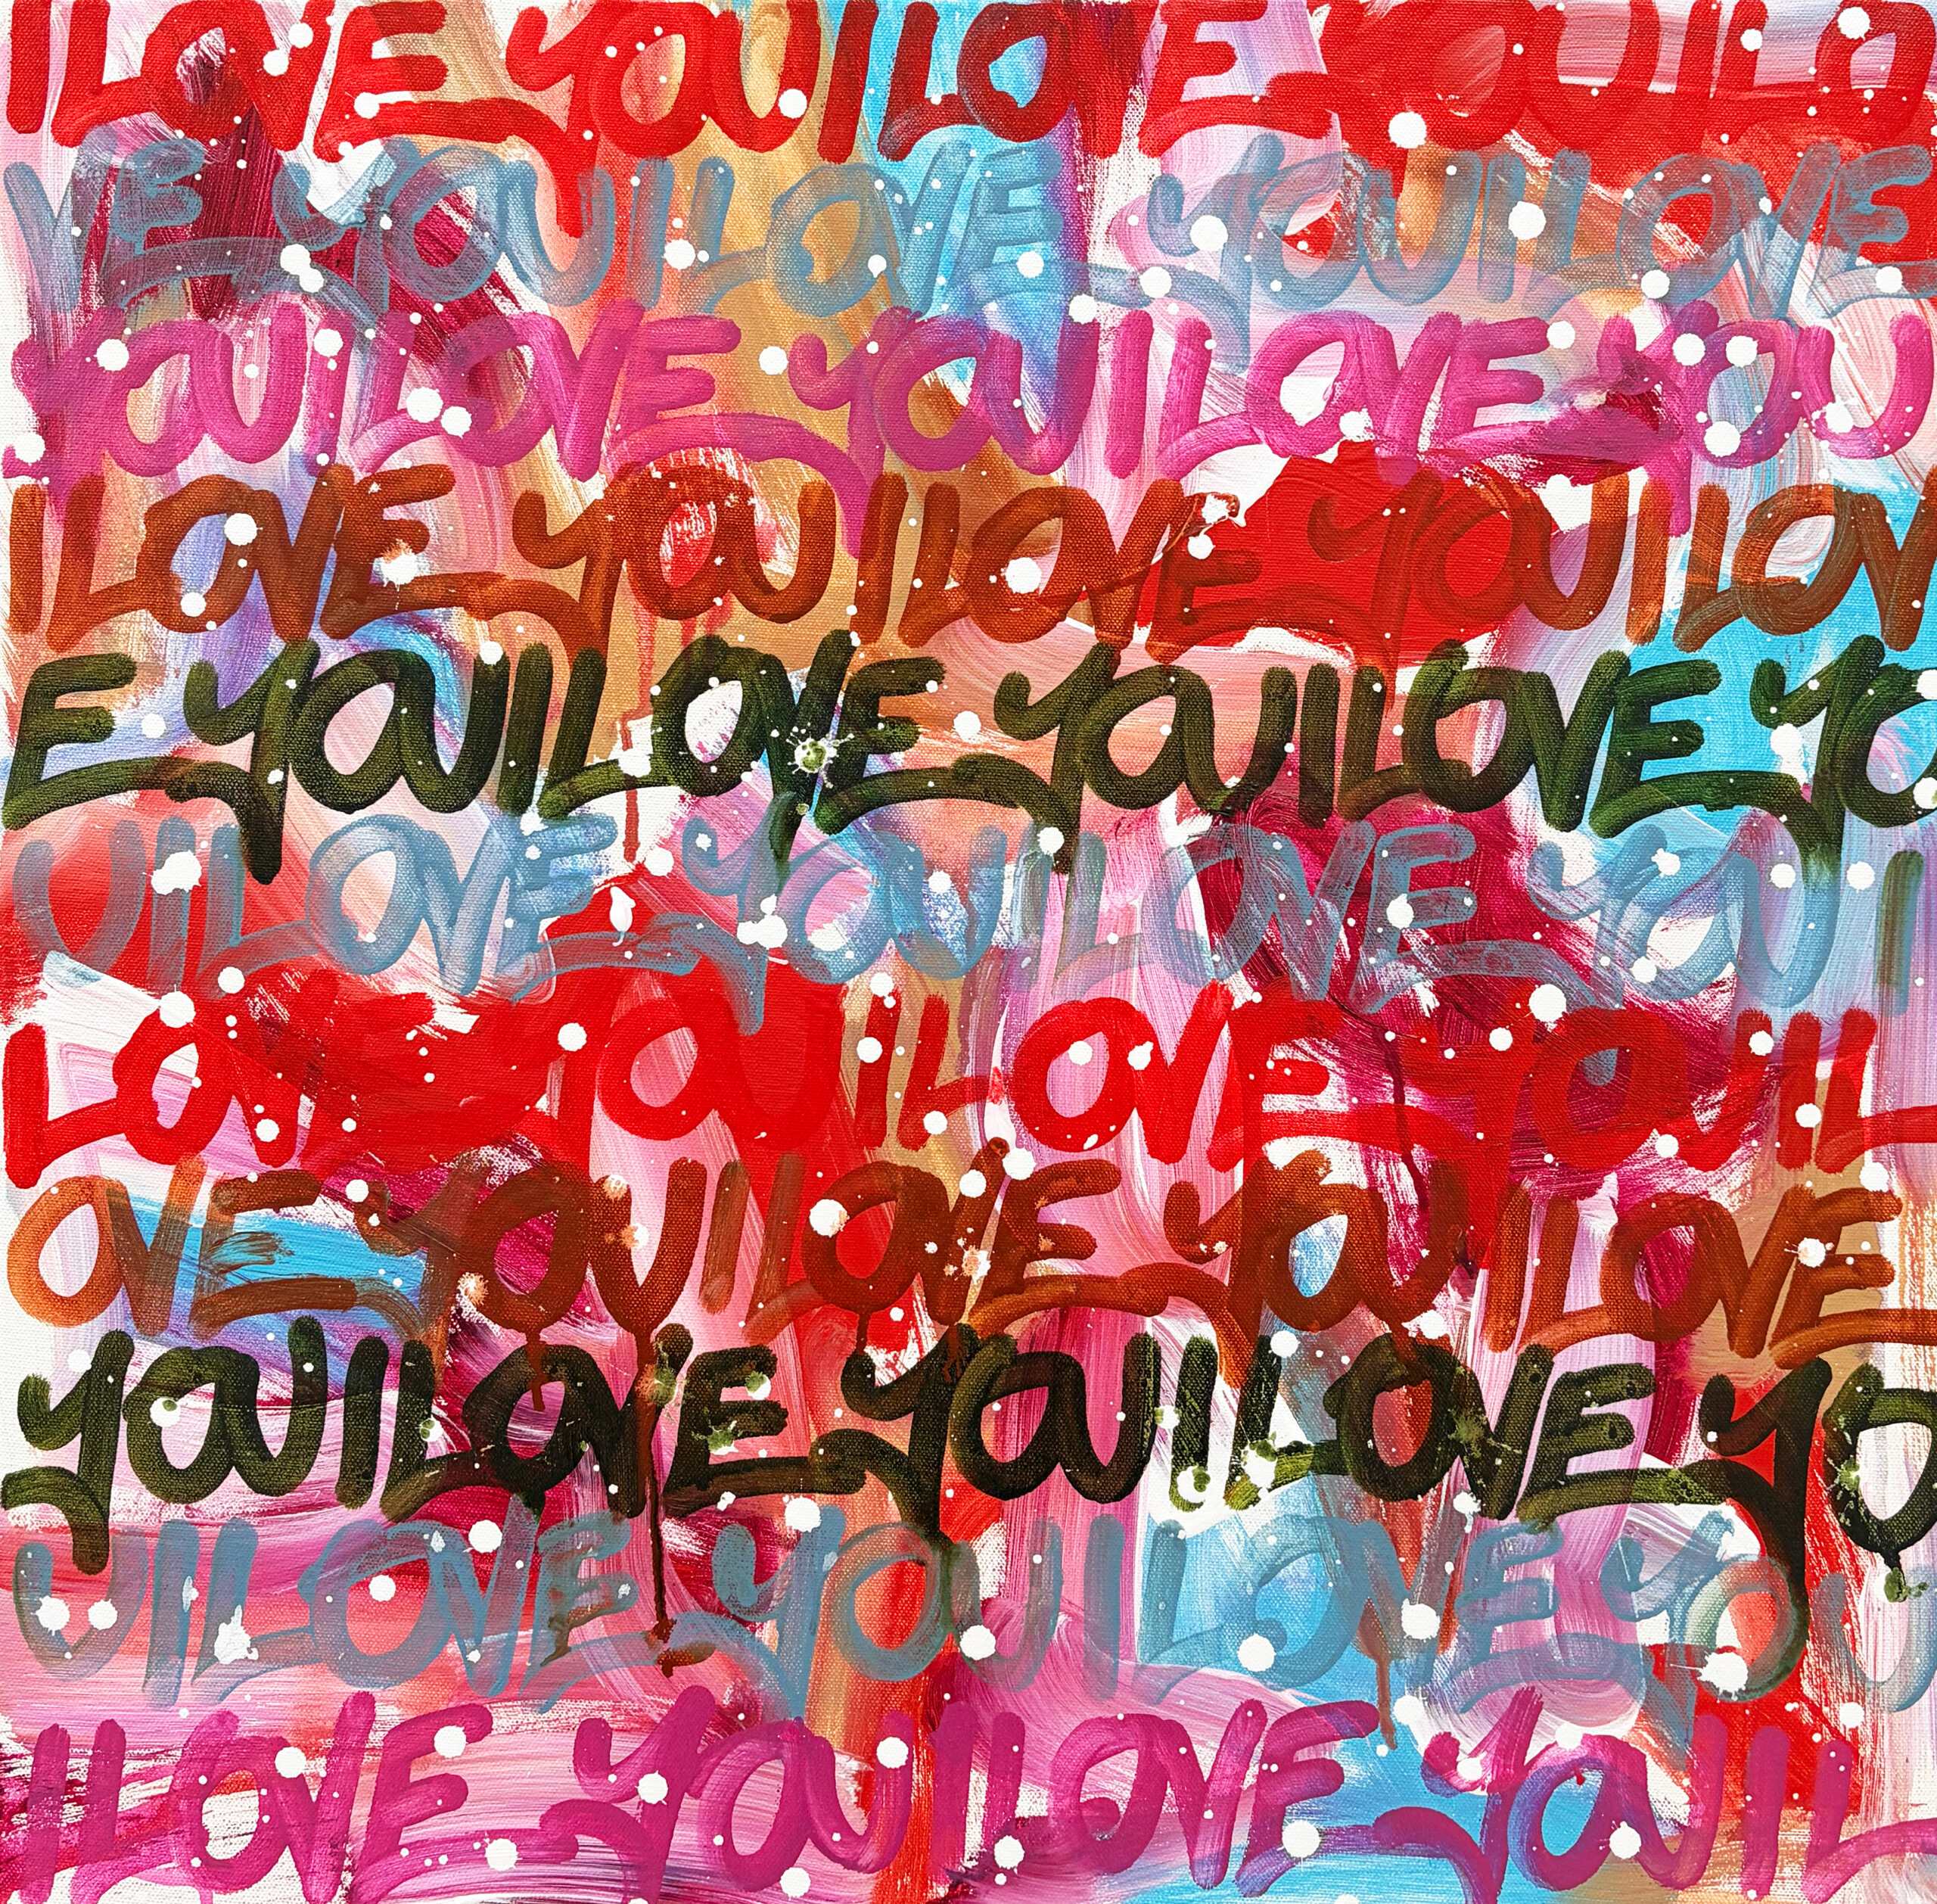 I LOVE YOU I LOVE YOU I LO
VE YOU I LOVE YOU I LOVE
YOU I LOVE YOU I LOVE YOU
I LOVE YOU I LOVE YOU I LOV
E YOU I LOVE YOU I LOVE YO
U I LOVE YOU I LOVE YOU I
LOVE YOU I LOVE YOU I L
OVE YOU I LOVE YOU I LOVE
YOU I LOVE YOU I LOVE YO
U I LOVE YOU I LOVE YOU
I LOVE YOU I LOVE YOU I L